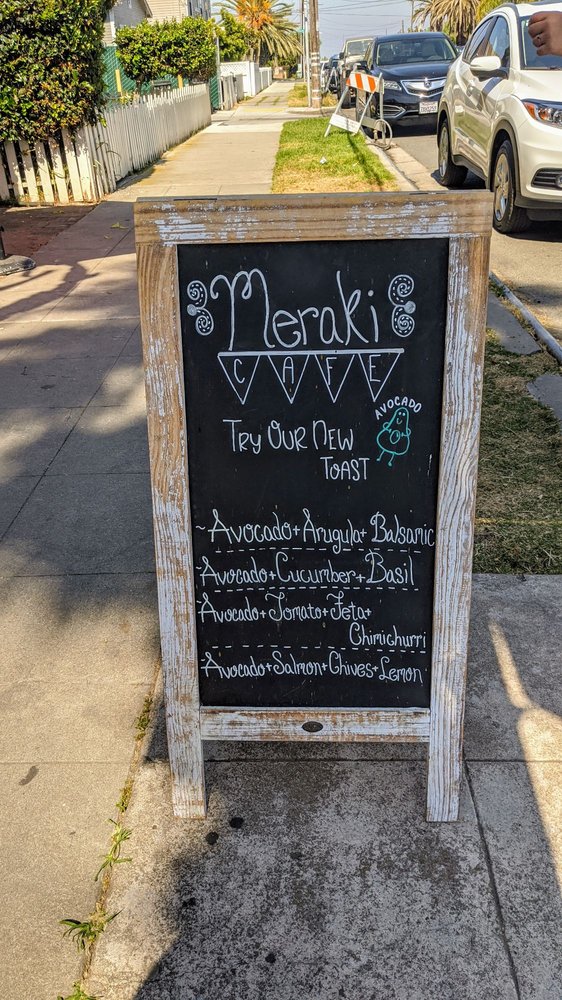 Meraki
CAFE
AVOCADO
Try Our New
Toast
~Avocado+Arugula+Balsamic
~Avocado+Cucumber+Basil
~Avocado+Tomato+Feta+
Chimichurri
~Avocado+Salmon+Chives+Lemon